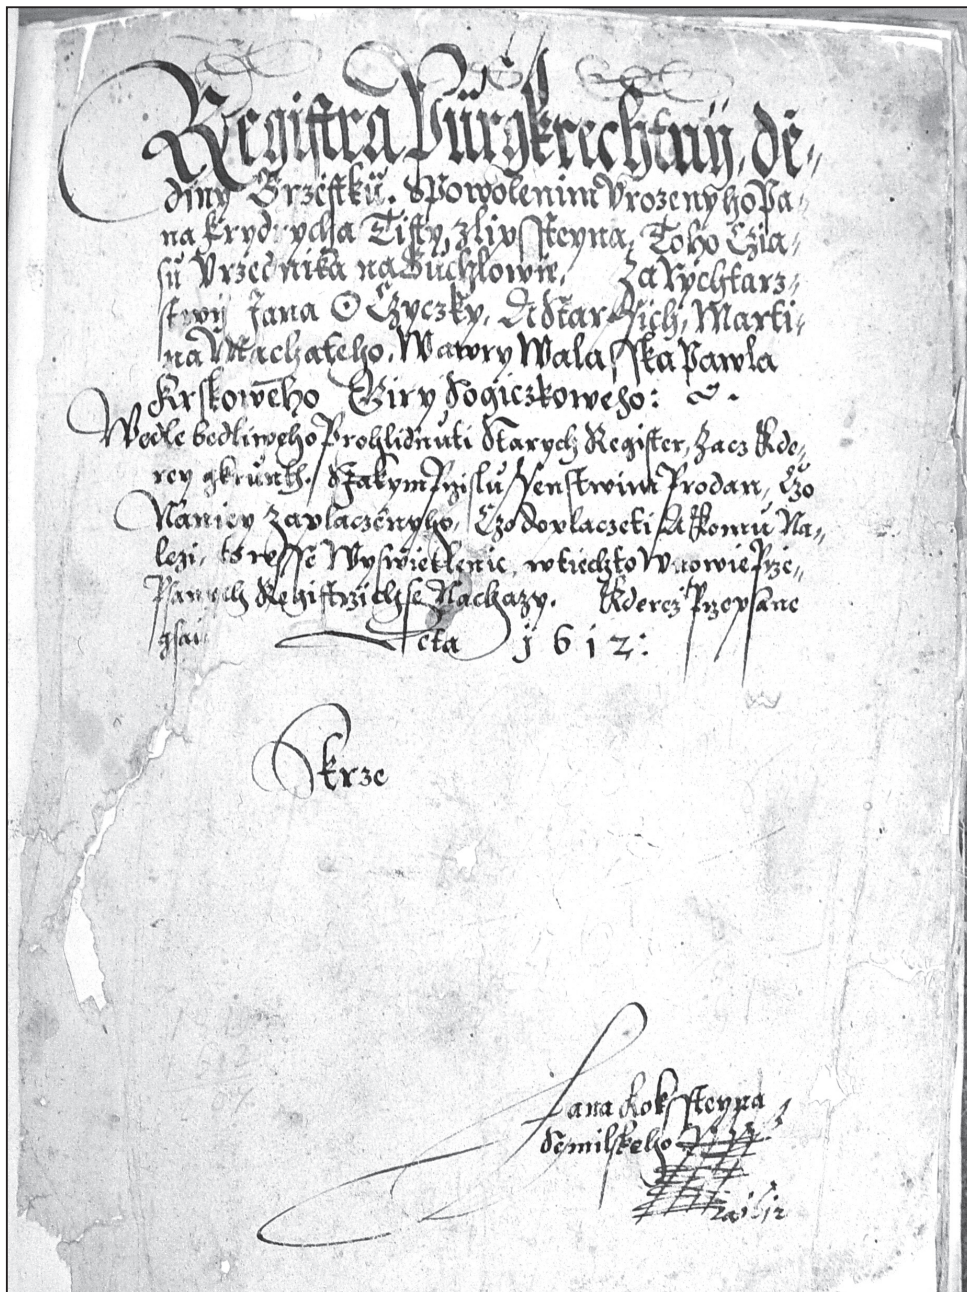 Registra Purgkrechtnij, dě-
diny Brzestku. S Powolenim Urozenyho Pa-
na Frydrycha Tisty, z Lipssteyna, Toho Czia-
su Vrzednika na Buchlowie, Za Rychtarz-
stwij Jana O Czyczky, A Starssich, Marti-
na Machateho, Wawry Walasska Pawla
Krskoweho Giry Sogiczkoweho:
Wedle bedliweho Prohlidnuti Starych Register, Zacz Kde-
rey gkrunth. S Jakym Przisslussenstwim Prodan, Czo
Naniey Zaplaczenyho, Czo doplaczeti A Komu Na-
lezi, to wsse Wyswietlenie, w tiechto W nowie Prze-
Psanych Registrzich se Nachazy. Kderez Przepsane
gsau Leta 1612:
Skrze
Jana Rokssteyna
Semilskeho